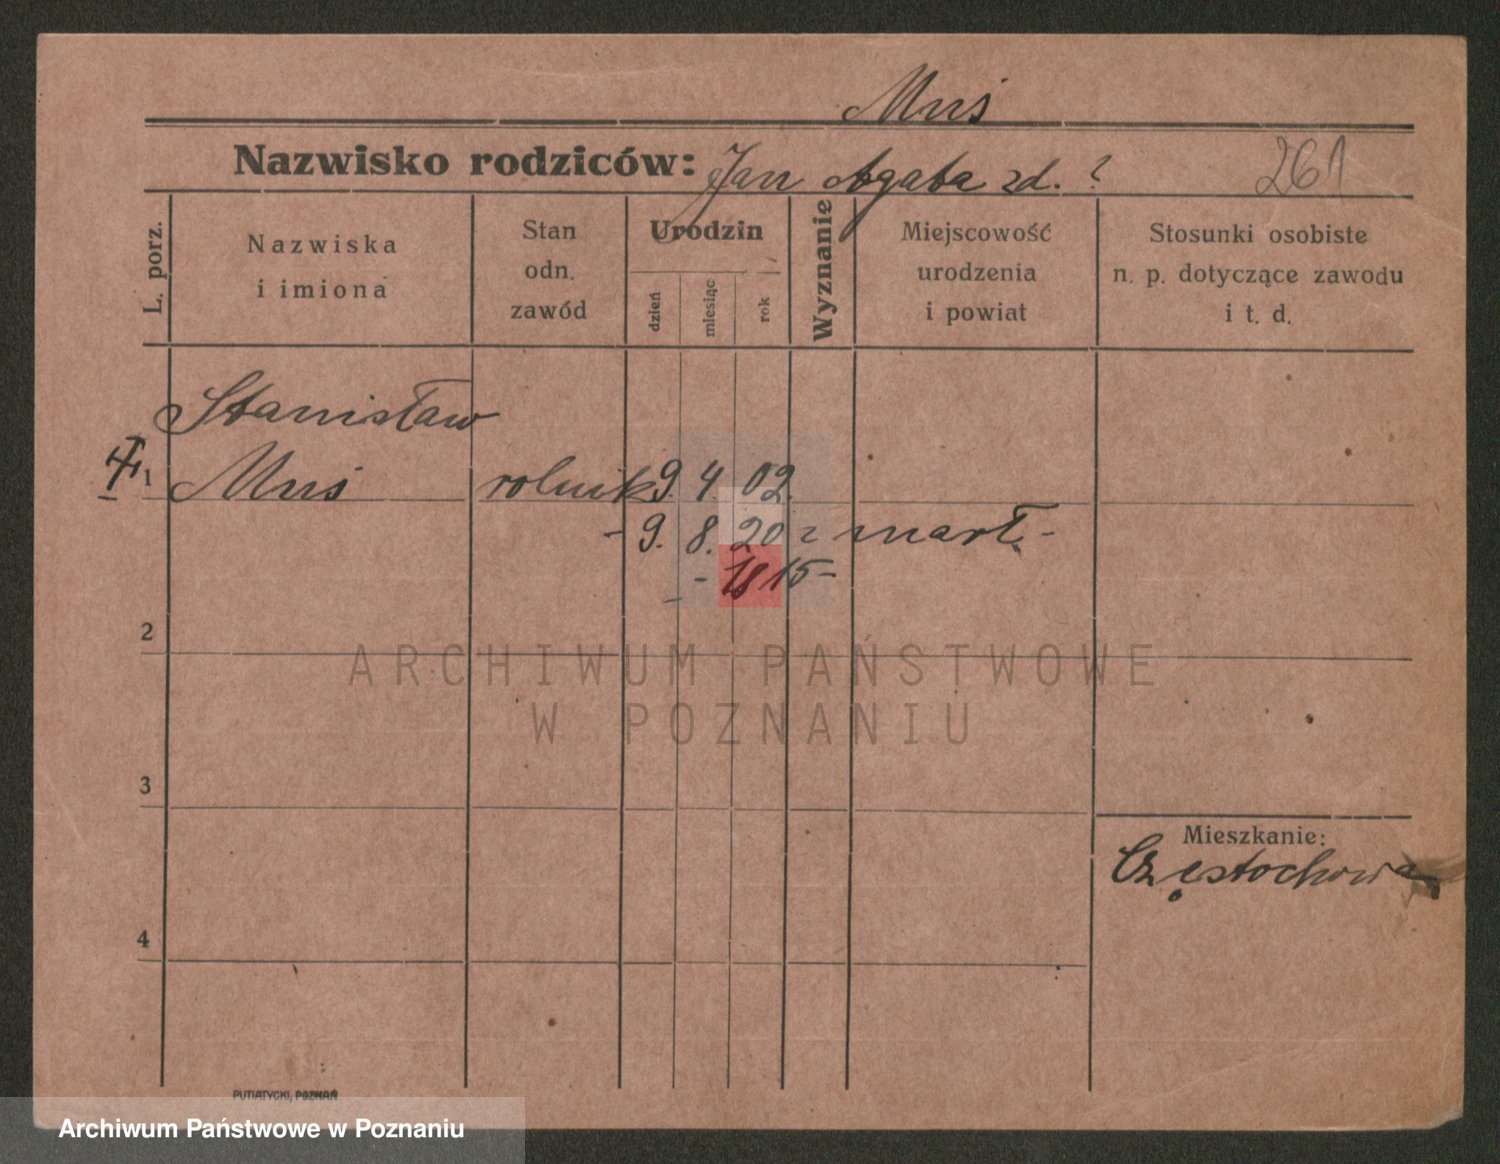 Muś
Nazwisko rodziców: Jan Agata zd. ?
261
L. porz.
Nazwiska
i imiona
Stan
odn.
zawód
Urodzin
dzień
miesiąc
rok
Wyznanie
Miejscowość
urodzenia
i powiat
Stosunki osobiste
n. p. dotyczące zawodu
i t. d.
Stanisław
1 Muś rolnik 9 4 02.
- 9. 8. 20 zmarł. -
- 1815 -
2
ARCHIWUM PAŃSTWOWE
W POZNANIU
3
Mieszkanie:
Częstochowa
4
PUTIATYCKI, POZNAŃ
Archiwum Państwowe w Poznaniu